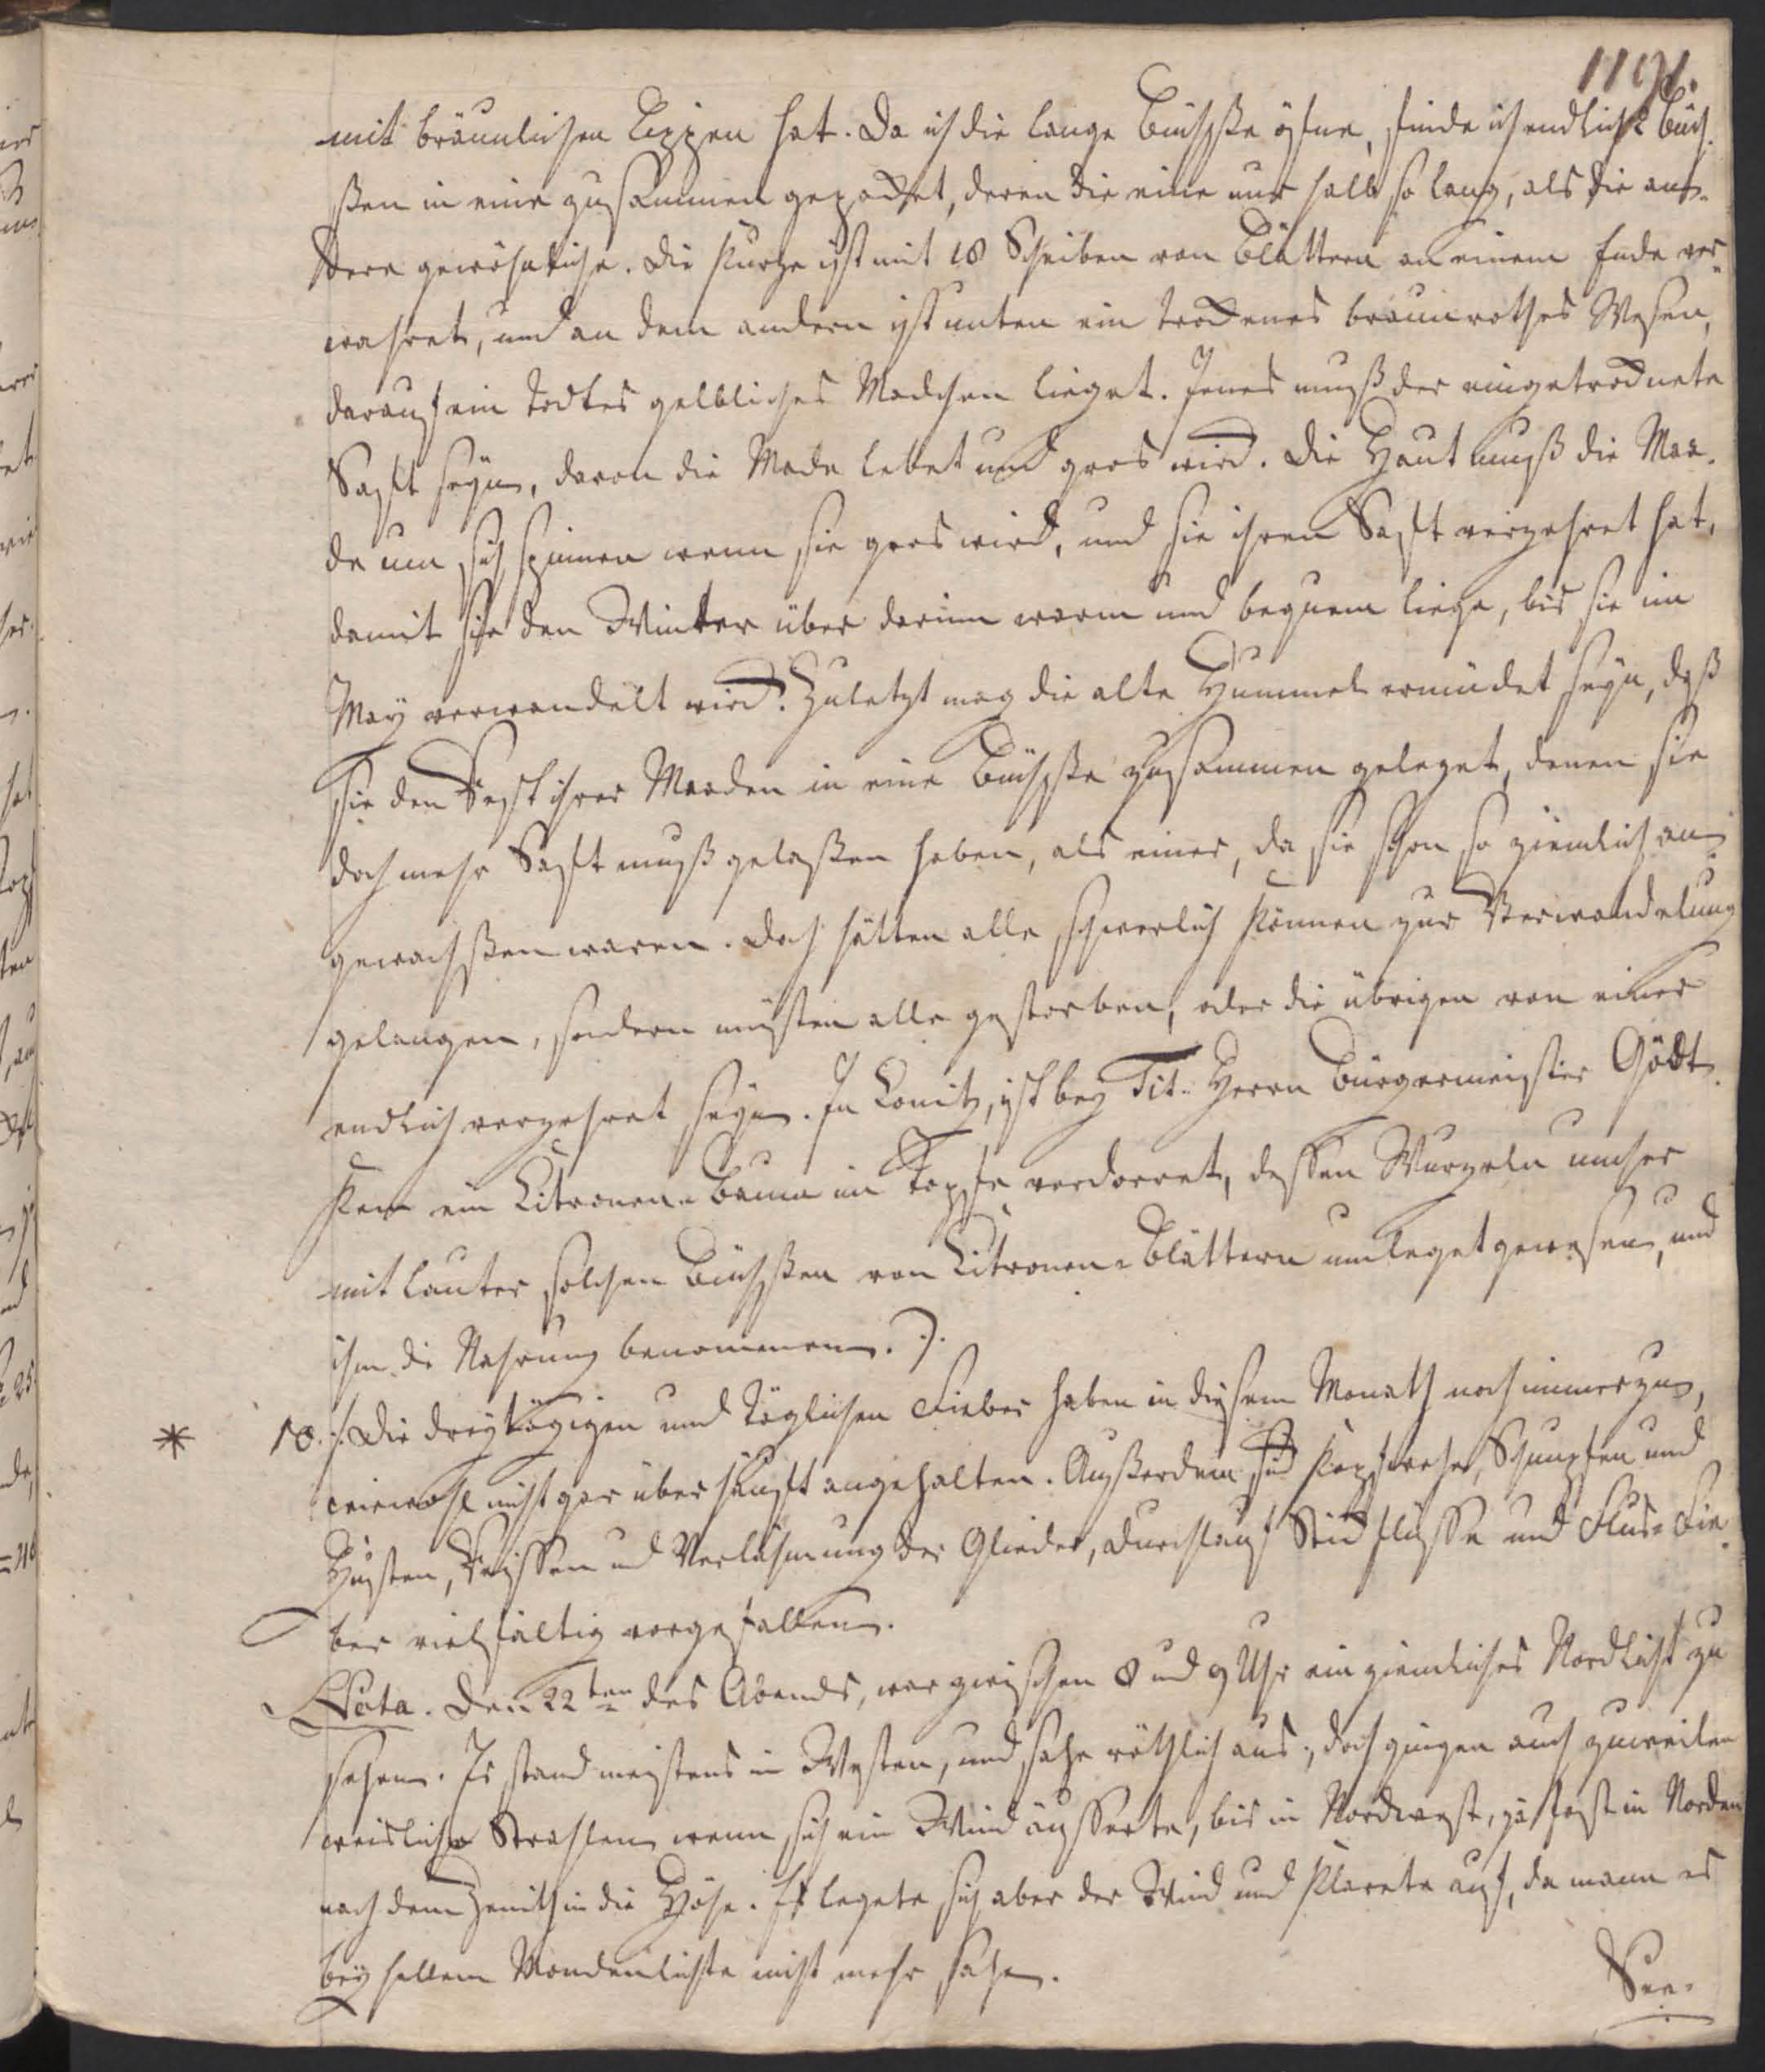 1191.
mit bräunlichen Lippen hat. Da ich die lange Büchße öfne, finde ich endlich 2 Büch-
ßen in eine zusammen gepacket, deren die eine nur halb so lang, als die an-
dere gewöhnliche. Die kurze ist mit 18 Scheiben von Blättern an einem Ende ver-
wahret, und an dem andern ist unten ein trockenes braunrothes Wesen,
darauf ein todtes gelbliches Madchen lieget. Jenes muß der eingetrocknete
Saft seyn, davon die Made lebet und gros wird. Die Haut muß die Maa-
de um sich spinnen wenn sie gros wird, und sie ihren Saft verzehret hat,
damit sie den Winter über darinn warm und bequem liege, bis sie im
May verwandelt wird. Zuletzt mag die alte Hummel ermüdet seyn, daß
sie den Rest ihrer Maaden in eine Büchße zusammen geleget, denen sie
doch mehr Saft muß gelaßen haben, als einer, da sie schon so ziemlich an-
gewachßen waren. Doch hätten alle schwerlich können zur Verwandelung
gelangen, sondern müsten alle gestorben, oder die übrigen von einer
endlich verzehret seyn. In Conitz, ist bey Tit. Herrn Bürgermeister Gödt-
ken ein Citronen-Baum im Topfe verdorret, dessen Wurzeln umher
mit lauter solchen Büchßen von Citronen-Blättern umleget gewesen, und
ihm die Nahrung benommen. ).
* 10. :/: Die dreytägigen und täglichen Fieber haben in diesem Monath noch immerzu,
wiewohl nicht gar überhäuft angehalten. Außerdem sind Kopfwehe, Schnupfen und
Husten, Reissen und Verlähmung der Glieder, Durchlauf Stickflüsse und Flus-Fie-
ber vielfältig vorgefallen.
Nota. Den 22ten des Abends, war zwischen 8 und 9 Uhr ein ziemliches Nordlicht zu
sehen. Es stand meistens in Westen, und sahe röthlich aus, doch gingen auch zuweilen
weisliche Strahlen wenn sich ein Wind äusserte, bis in Nordwest, ja fast in Norden
nach dem Zenith in die Höhe. Es legete sich aber der Wind und klärete auf, da mann es
bey hellem Mondenlichte nicht mehr sahe.